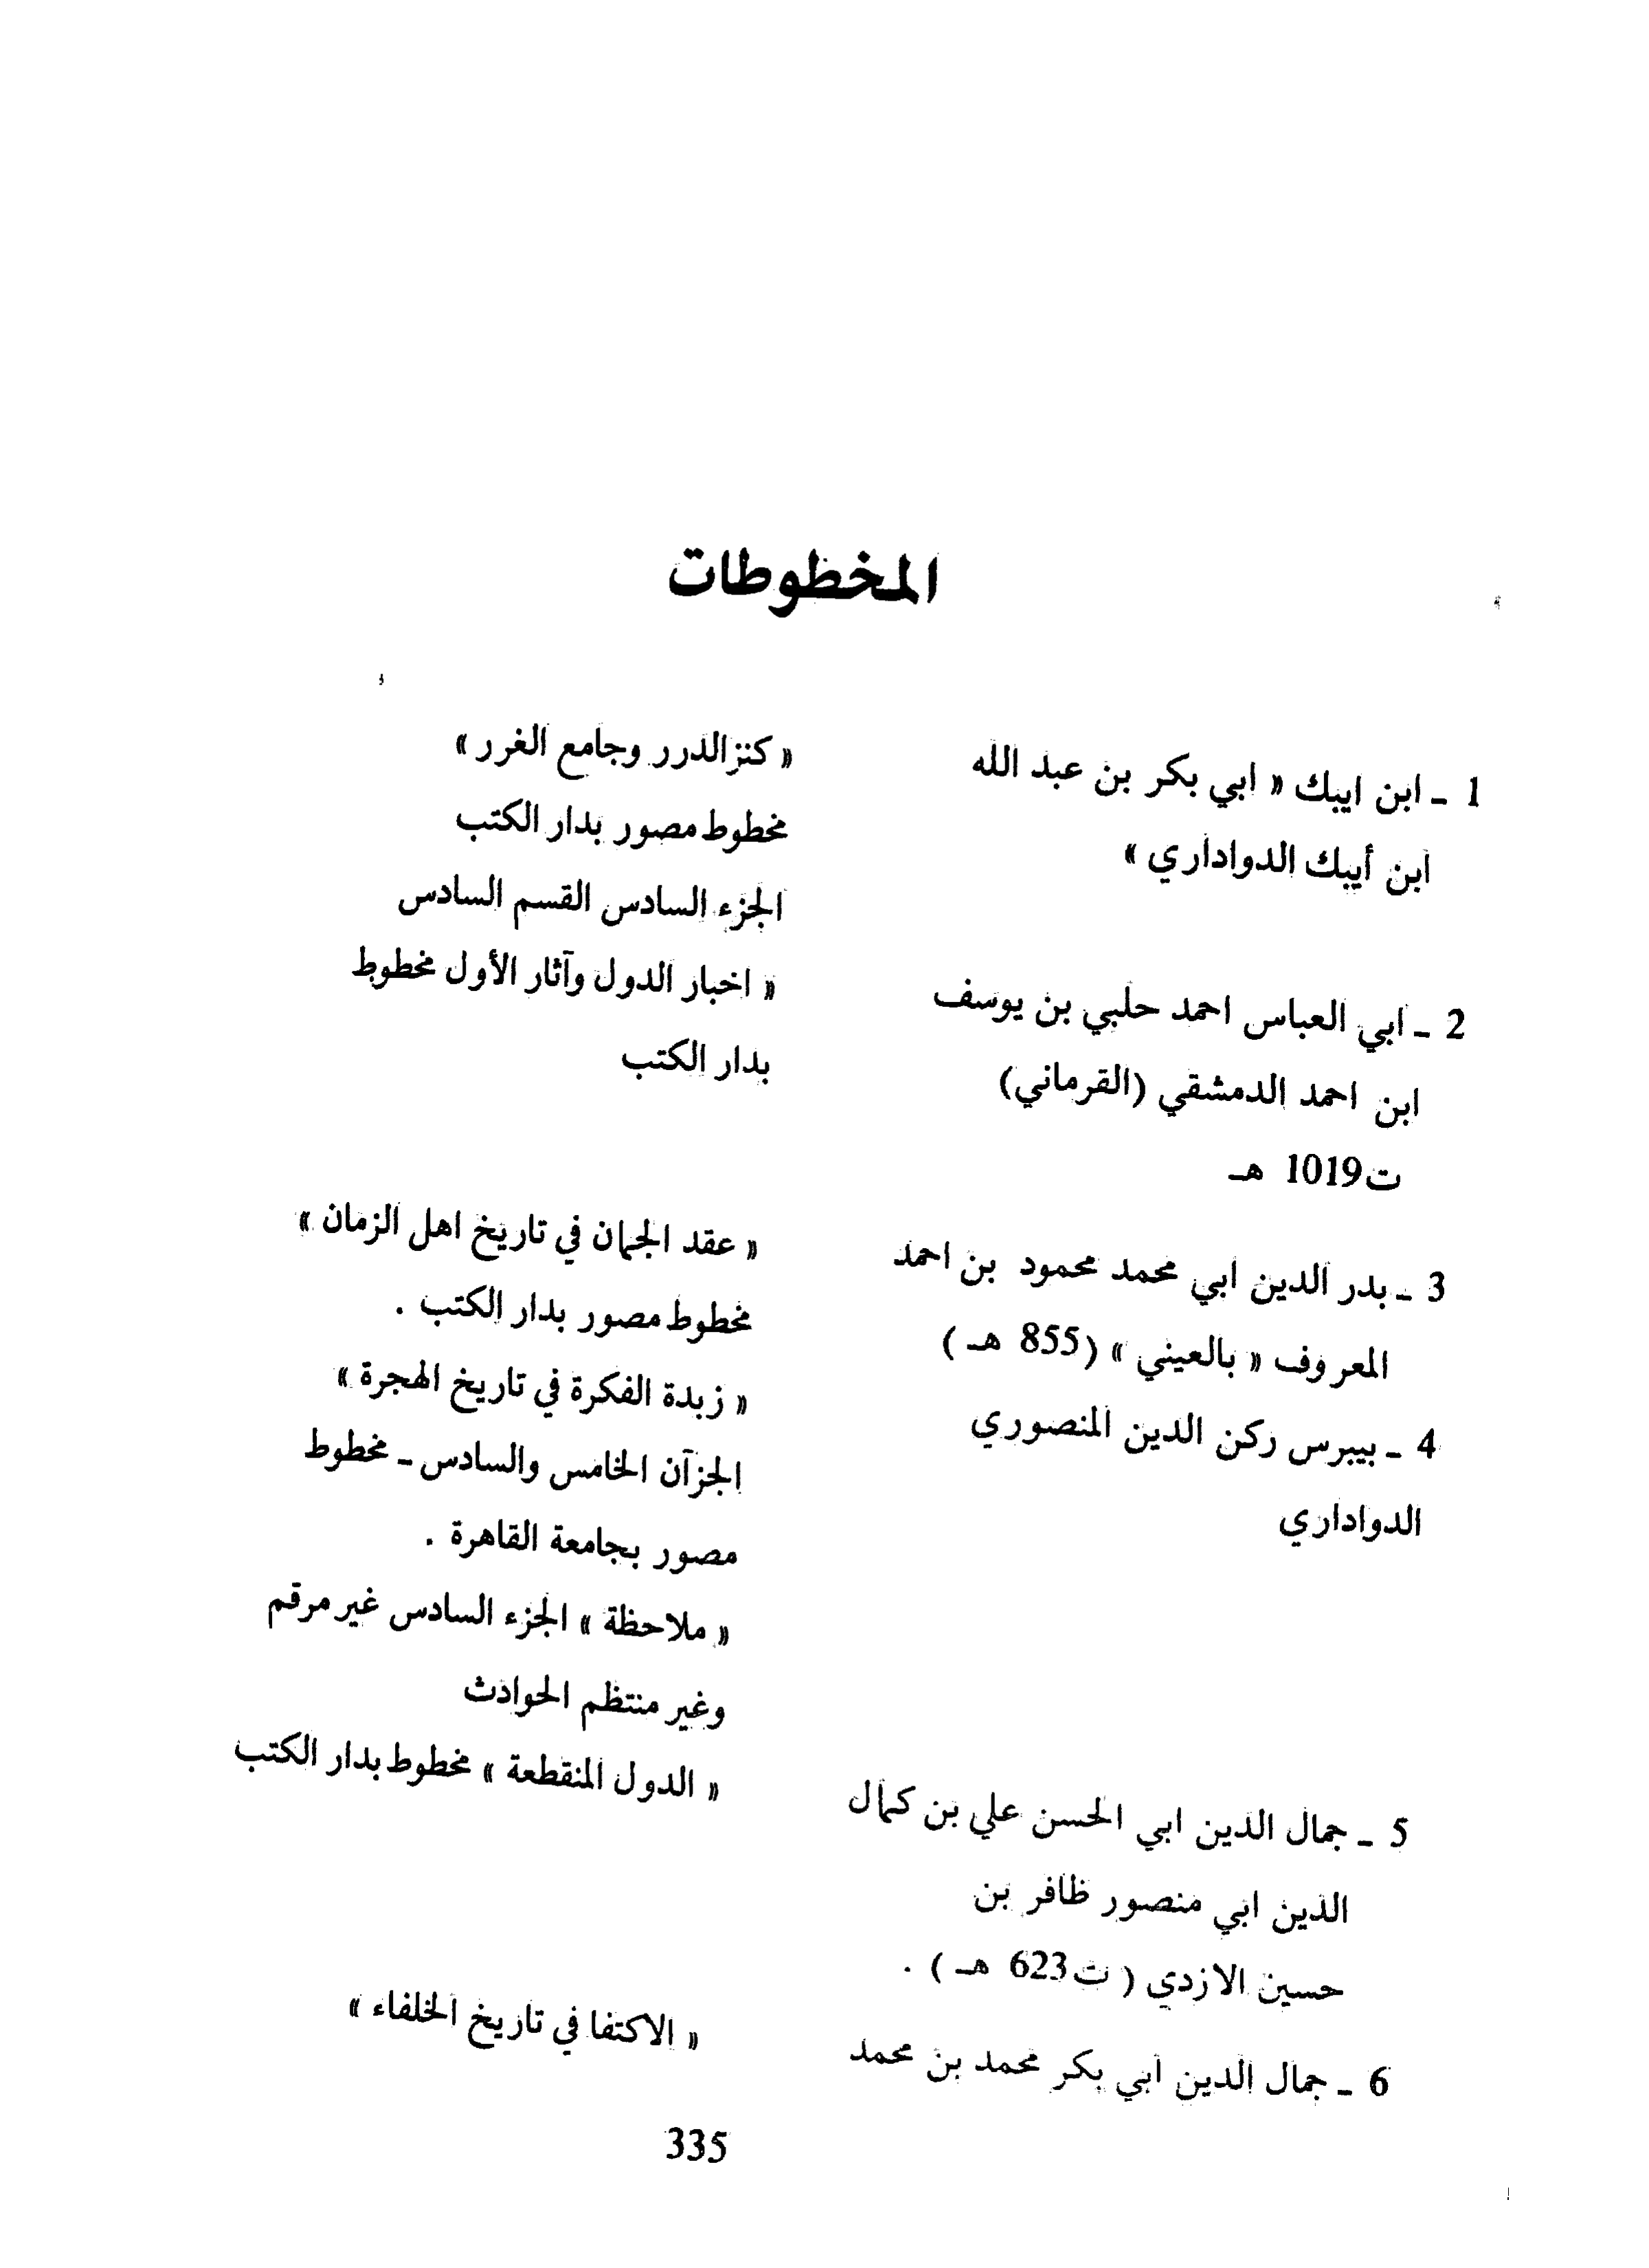 المخطوطات
1 ـ ابن ايبك « ابي بكر بن عبد الله
ابن أيبك الدواداري »
« كنز الدرر وجامع الغرر »
مخطوط مصور بدار الكتب
الجزء السادس القسم السادس
2 ـ ابي العباس احمد حلبي بن يوسف
ابن احمد الدمشقي (القرماني)
ت1019 هـ
« اخبار الدول وآثار الأول مخطوط
بدار الكتب
3 ـ بدر الدين ابي محمد محمود بن احمد
المعروف « بالعيني » (855 هـ )
« عقد الجمان في تاريخ اهل الزمان »
مخطوط مصور بدار الكتب .
4 ـ بيبرس ركن الدين المنصوري
الدواداري
« زبدة الفكرة في تاريخ الهجرة »
الجزآن الخامس والسادس ـ مخطوط
مصور بجامعة القاهرة .
« ملاحظة » الجزء السادس غير مرقم
وغير منتظم الحوادث
5 ـ جمال الدين ابي الحسن علي بن كمال
الدين ابي منصور ظافر بن
حسين الازدي ( ت623 هـ ) .
« الدول المنقطعة » مخطوط بدار الكتب
6 ـ جمال الدين أبي بكر محمد بن محمد
« الاكتفا في تاريخ الخلفاء »
335